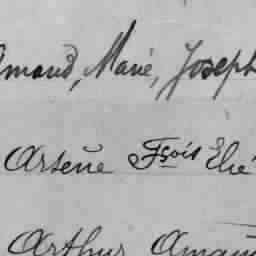 mand, Marie, Joseph
Arsène Fçois Elie
Arthur Aman